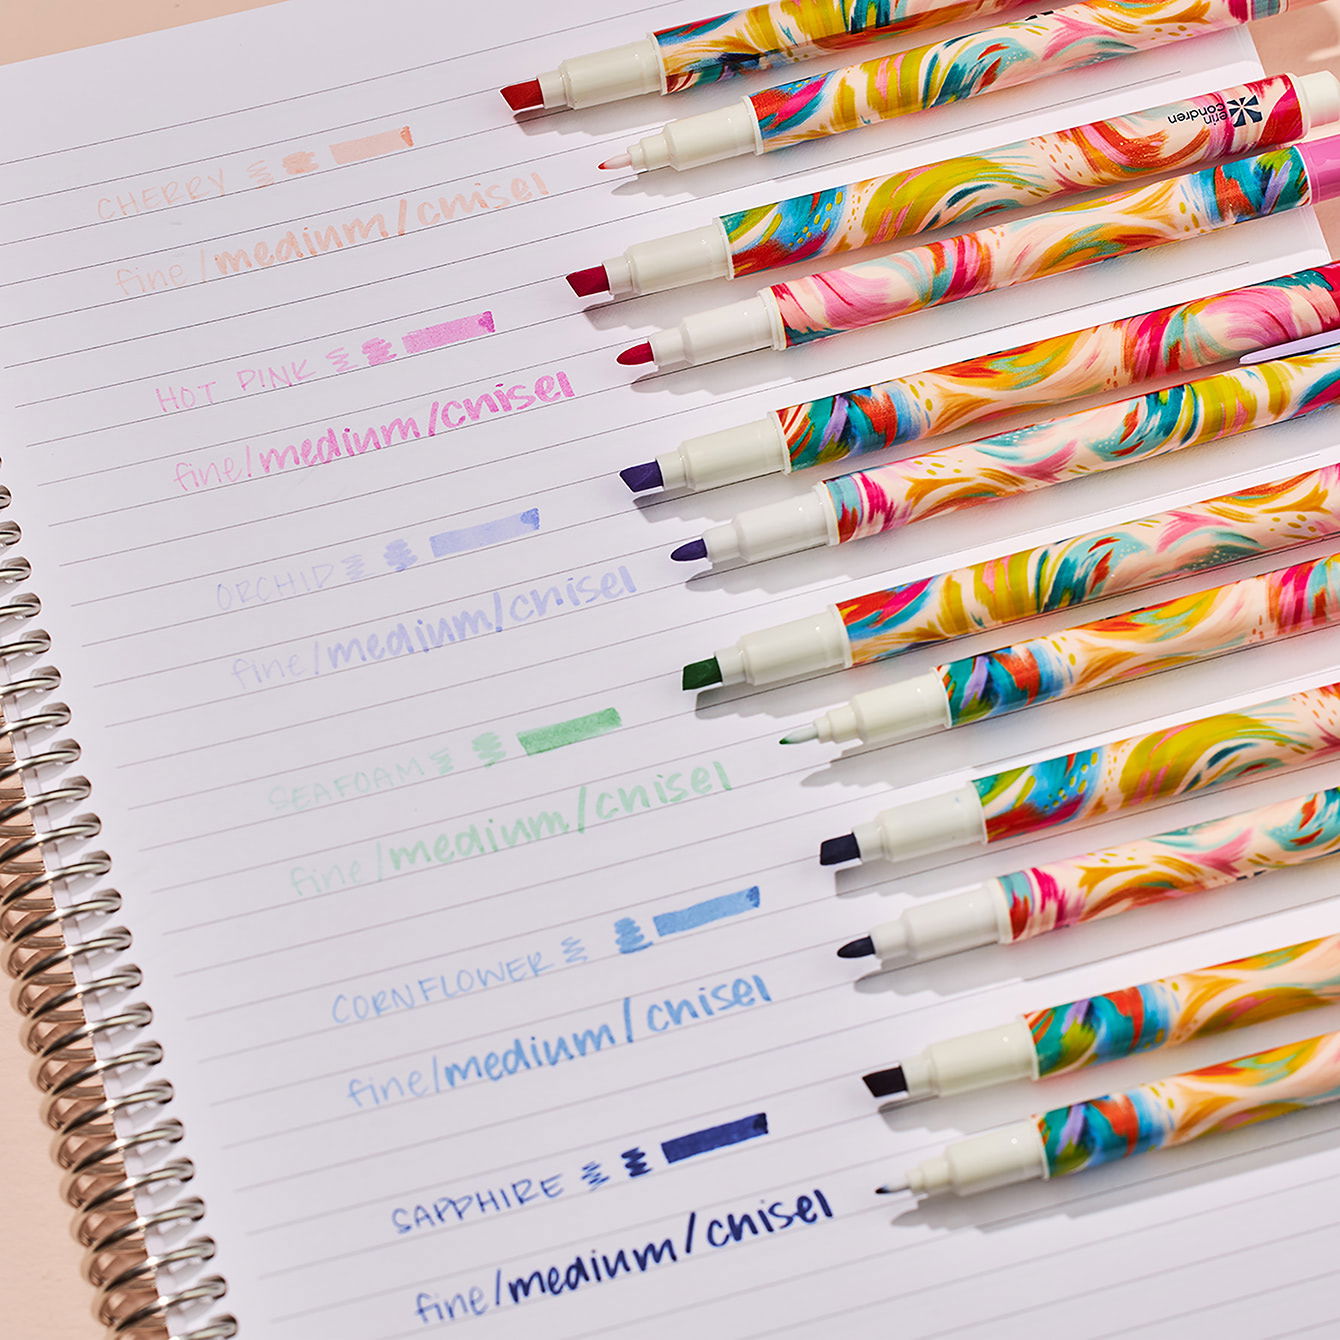 CHERRY
fine/medium/chisel
HOT PINK
fine/medium/chisel
ORCHID
fine/medium/chisel
SEAFOAM
fine/medium/chisel
CORNFLOWER
fine/medium/chisel
SAPPHIRE
fine/medium/chisel
erin
condren